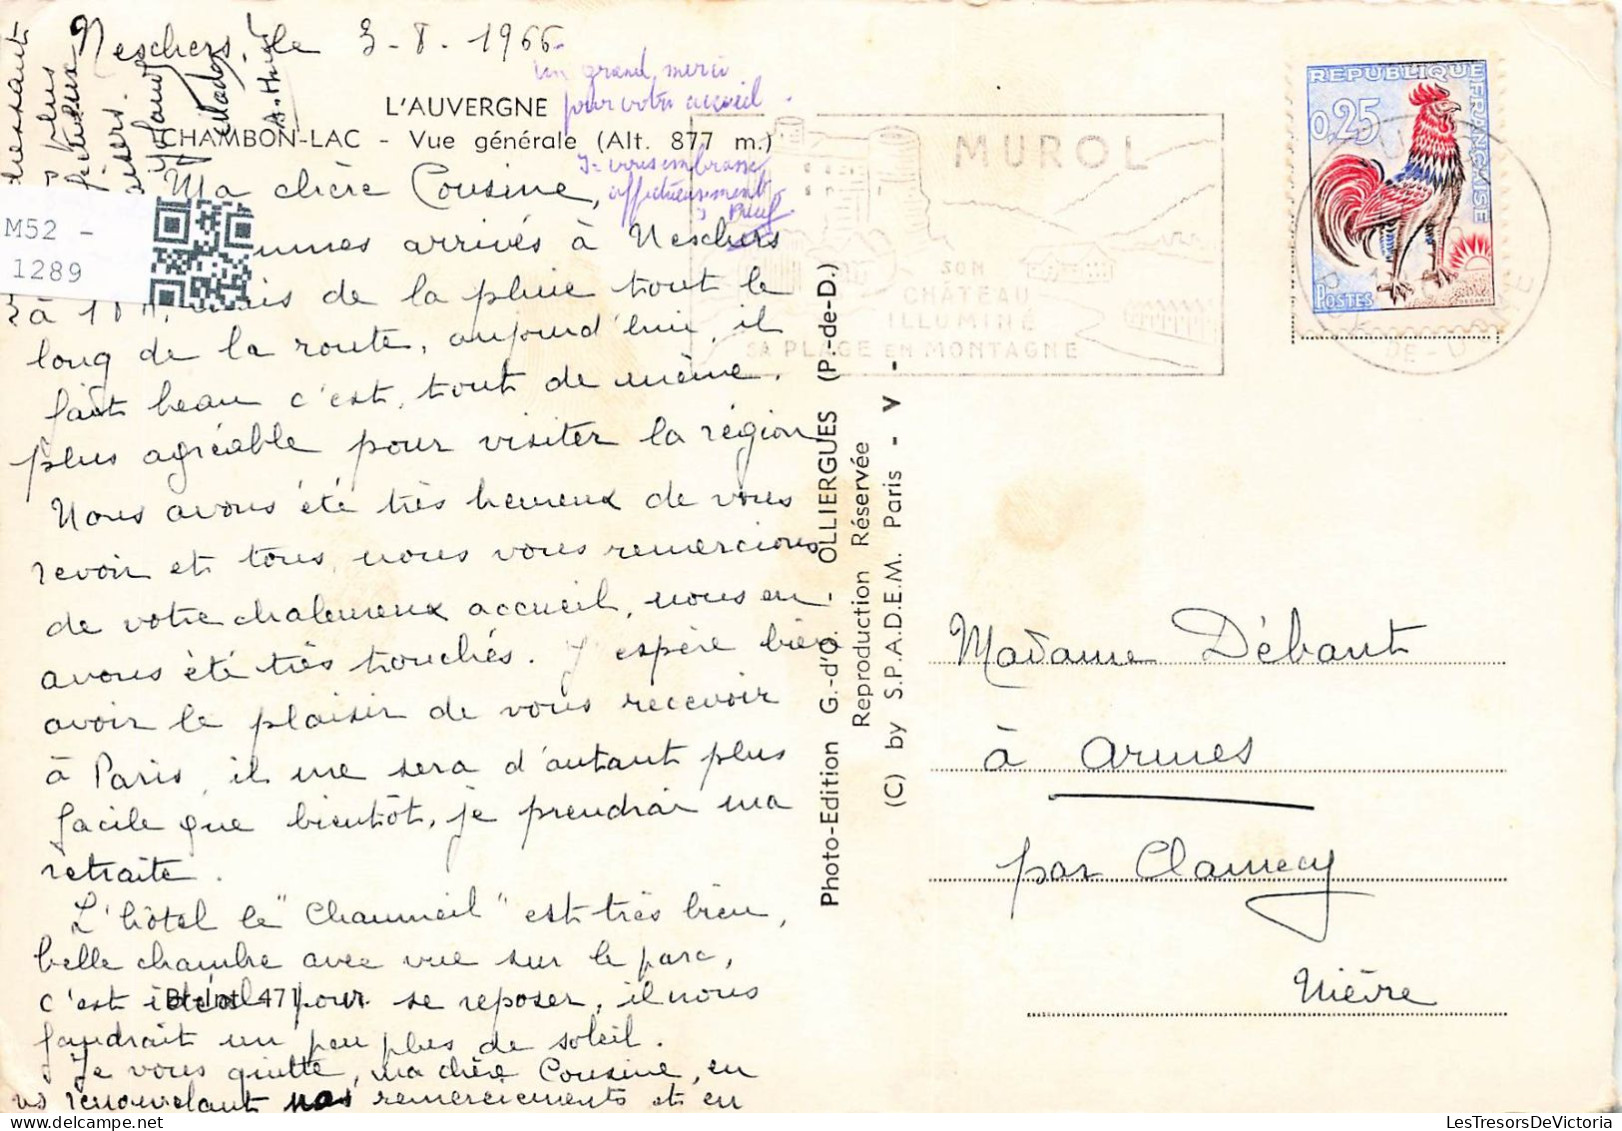 Neschers, le 3-8-1966
L'AUVERGNE
CHAMBON-LAC - Vue générale (Alt. 877 m.)
Un grand merci
pour votre accueil.
Je vous embrasse
affectueusement
M52 -
1289
Ma chère Cousine,
sommes arrivés à Neschers
à 18 H, mais de la pluie tout le
long de la route, aujourd'hui, il
fait beau c'est, tout de même,
plus agréable pour visiter la région
Nous avons été très heureux de vous
revoir et tous, nous vous remercions
de votre chaleureux accueil, nous en
avons été très touchés. J'espère bien
avoir le plaisir de vous recevoir
à Paris, il me sera d'autant plus
facile que bientôt, je prendrai ma
retraite.
L'hôtel le "Chaumeil" est très bien,
belle chambre avec vue sur le parc,
c'est idéal pour se reposer, il nous
faudrait un peu plus de soleil.
Je vous quitte, ma chère Cousine, en
vs renouvelant nos remerciements et en
dressant
s plus
baisers.
Bt. Int. 471
Photo-Edition G.-d'O. OLLIERGUES (P.-de-D.)
Reproduction Réservée
(C) by S.P.A.D.E.M. Paris - V -
MUROL
SON
CHÂTEAU
ILLUMINÉ
SA PLAGE EN MONTAGNE
REPUBLIQUE FRANÇAISE
0,25
POSTES
Madame Débant
à Armes
par Clamecy
Nièvre
LesTresorsDeVictoria.com